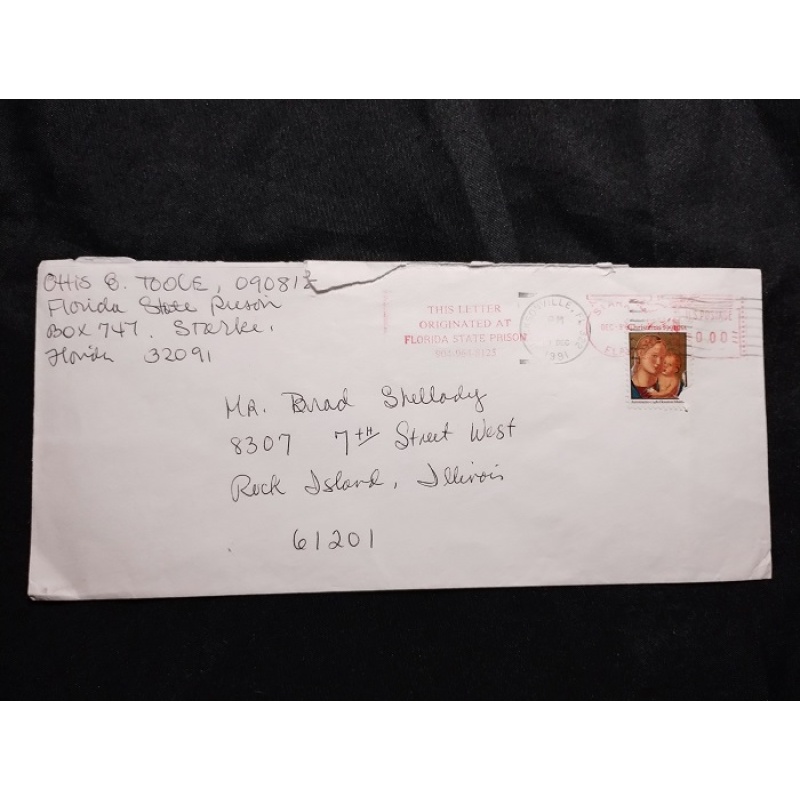 Ottis E. TOOLE, 090812
Florida State Prison
BOX 747. Starke,
Florida 32091
THIS LETTER
ORIGINATED AT
FLORIDA STATE PRISON
PM
1991
DEC
Christmas
0.00
MR. Brad Shellady
8307 7TH Street West
Rock Island, Illinois
61201